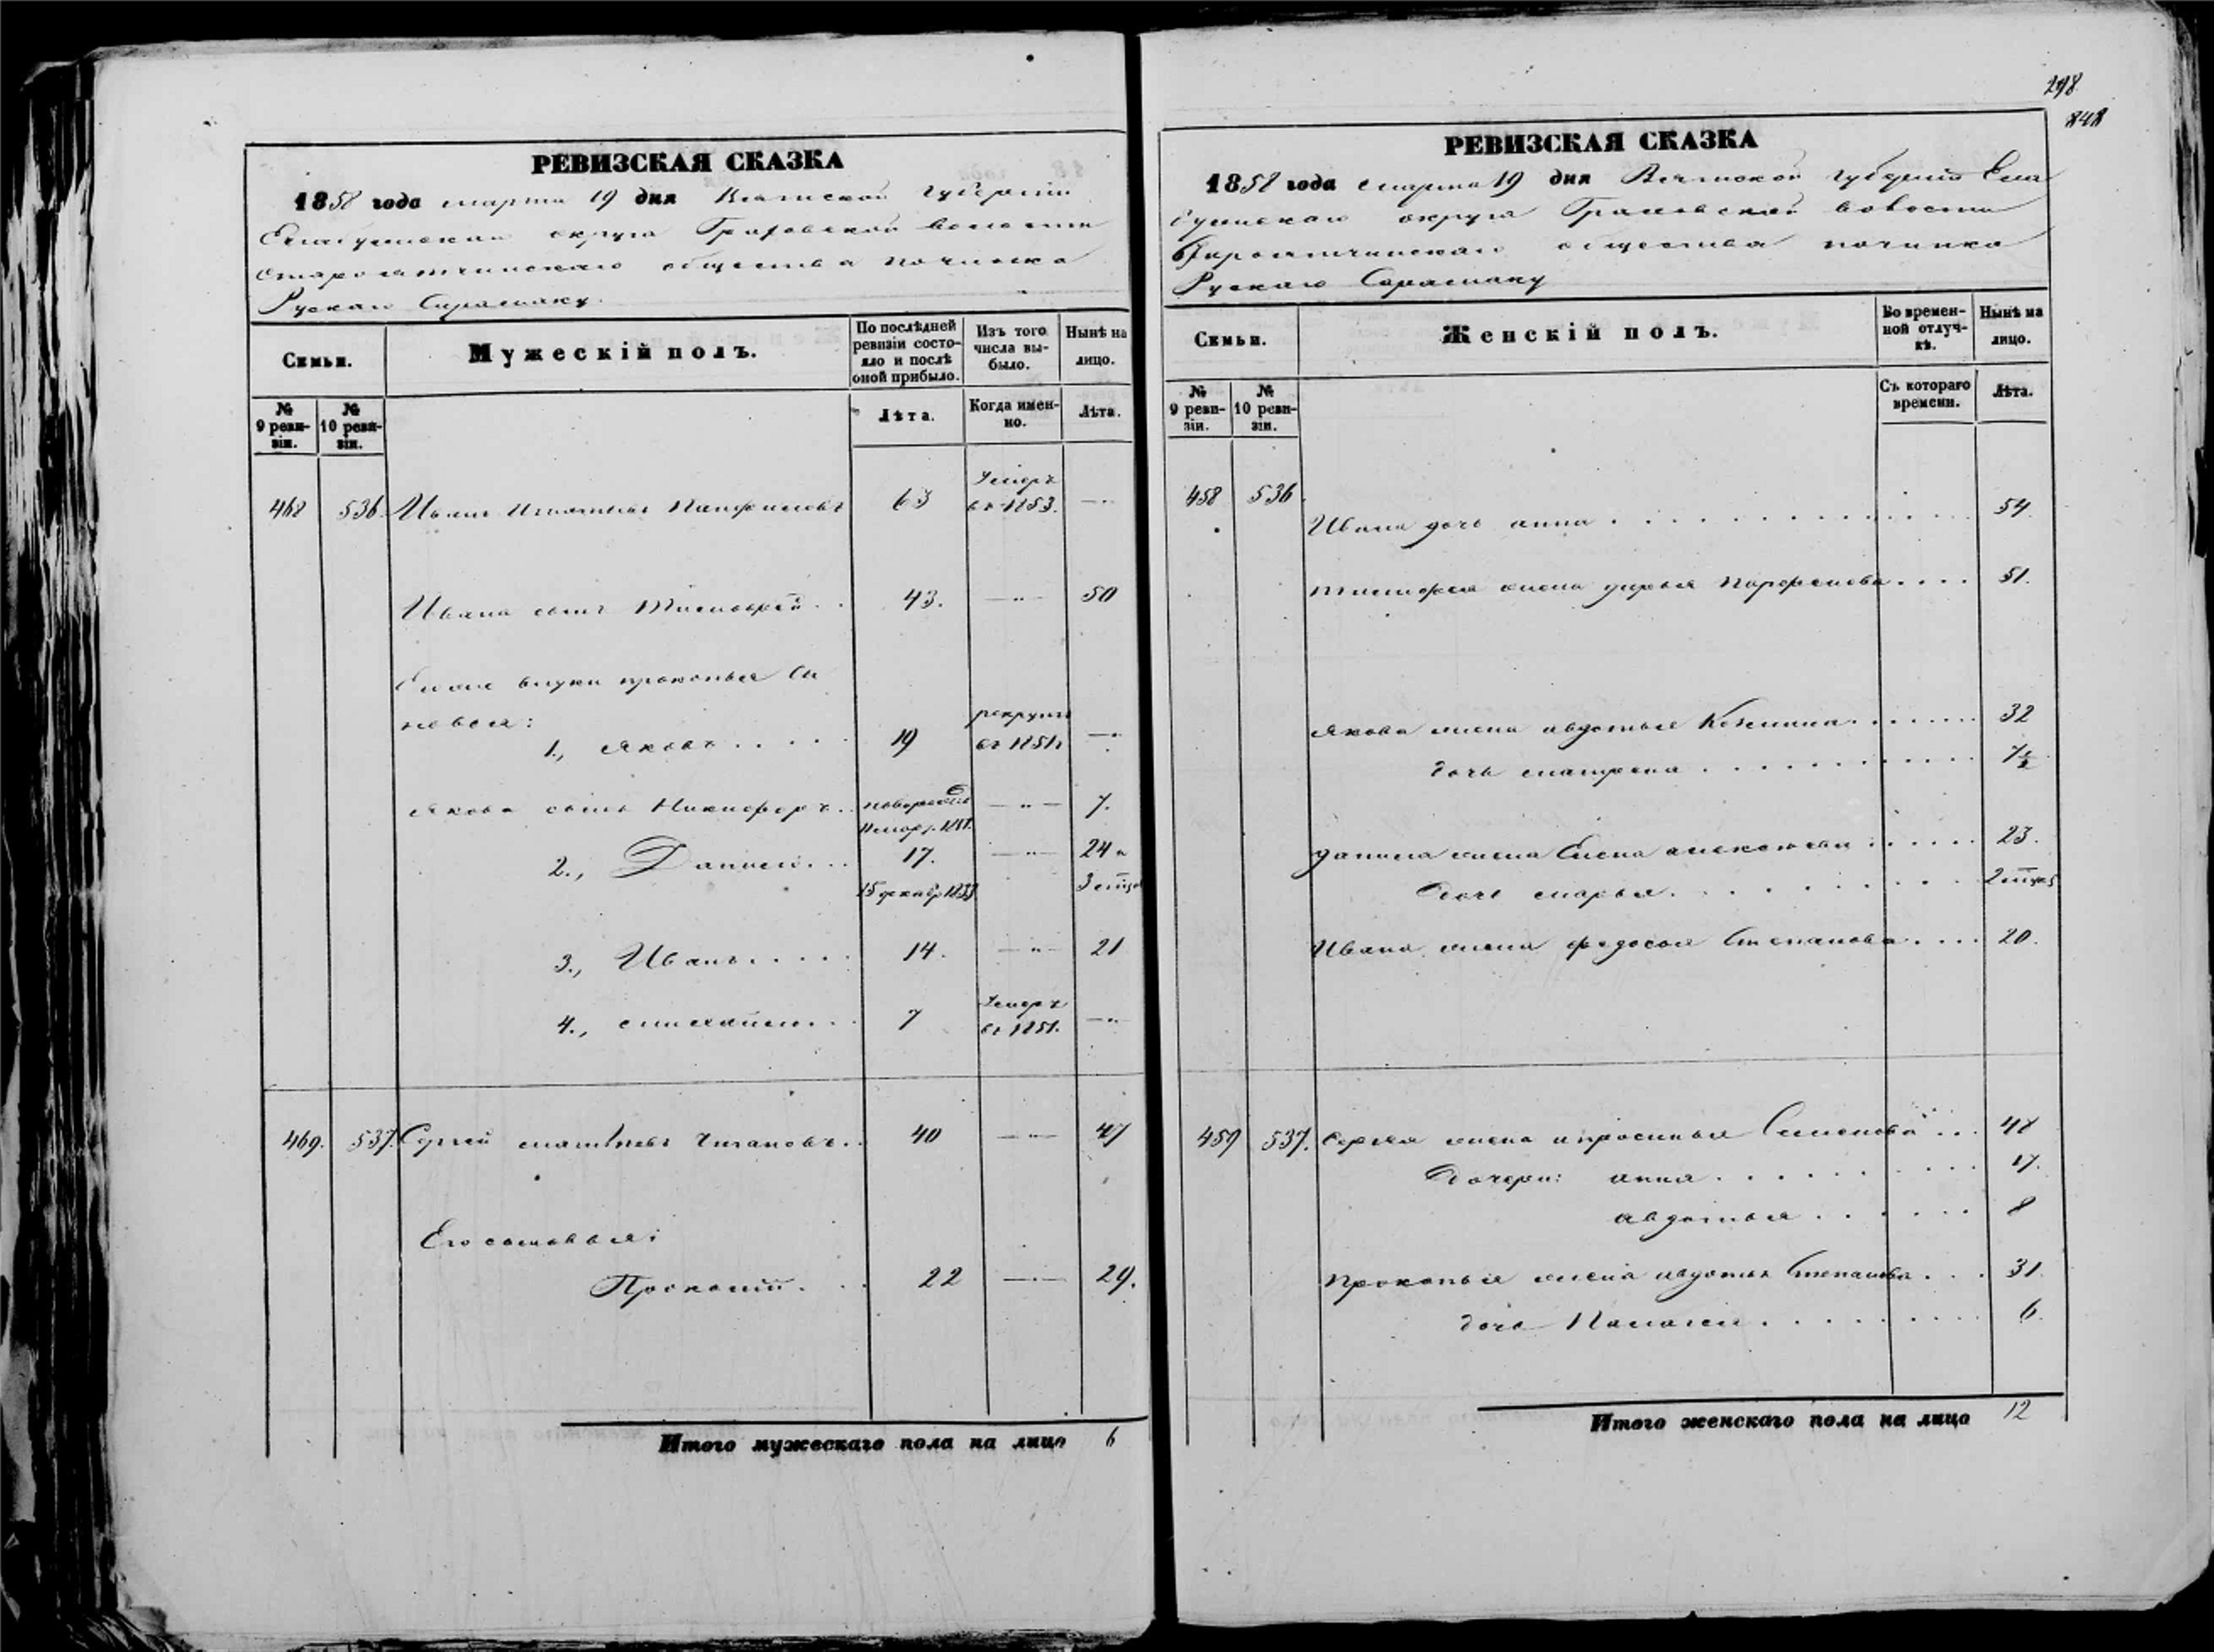 298
848
РЕВИЗСКАЯ СКАЗКА
1858 года марта 19 дня Вятской губернии
Елабужскаго округа Граховской волости
Староятчинскаго общества починка
Рускаго Сарамаку
Семьи.
Мужескій полъ.
По послѣдней ревизіи состояло и послѣ оной прибыло.
Изъ того числа выбыло.
Нынѣ на лицо.
№ 9 ревизіи.
№ 10 ревизіи.
Лѣта.
Когда именно.
Лѣта.
468 536 Иванъ Игнатьевъ 63 Умеръ въ 1853.
Ивана сынъ Тимофей 43. 50
внуки прокопья си
новья:
1., Яковъ 19 рекрутъ въ 1851
Якова сынъ Никифоръ новорожд 7.
2., Данило 17. 24 и
15 декабр 1833 3 мца
3., Иванъ 14. 21
4., михайло 7 Умеръ въ 1851.
469. 537. Сергей матвѣевъ Чигановъ 40 47
Его сыновья:
Прокопій 22 29.
Итого мужескаго пола на лицо 6
РЕВИЗСКАЯ СКАЗКА
1858 года марта 19 дня Вятской губерніи Ела
бужскаго округа Граховской волости
Староятчинскаго общества починка
Рускаго Сарамаку
Семьи.
Женскій полъ.
Во временной отлучкѣ.
Нынѣ на лицо.
№ 9 ревизіи.
№ 10 ревизіи.
Съ котораго времени.
Лѣта.
458 536.
Ивана дочь анна 54.
тимофея жена дарья Парфенова 51.
якова жена авдотья 32
дочь матрена 7½
данила жена Елена алексѣева 23.
дочь марья 2 мцев
Ивана жена федосья Степанова 20.
459 537. Сергея жена апросинья Семенова 48
дочери: анна 17.
авдотья 8
прокопья жена авдотья Степанова 31.
дочь Палагея 6.
Итого женскаго пола на лицо 12